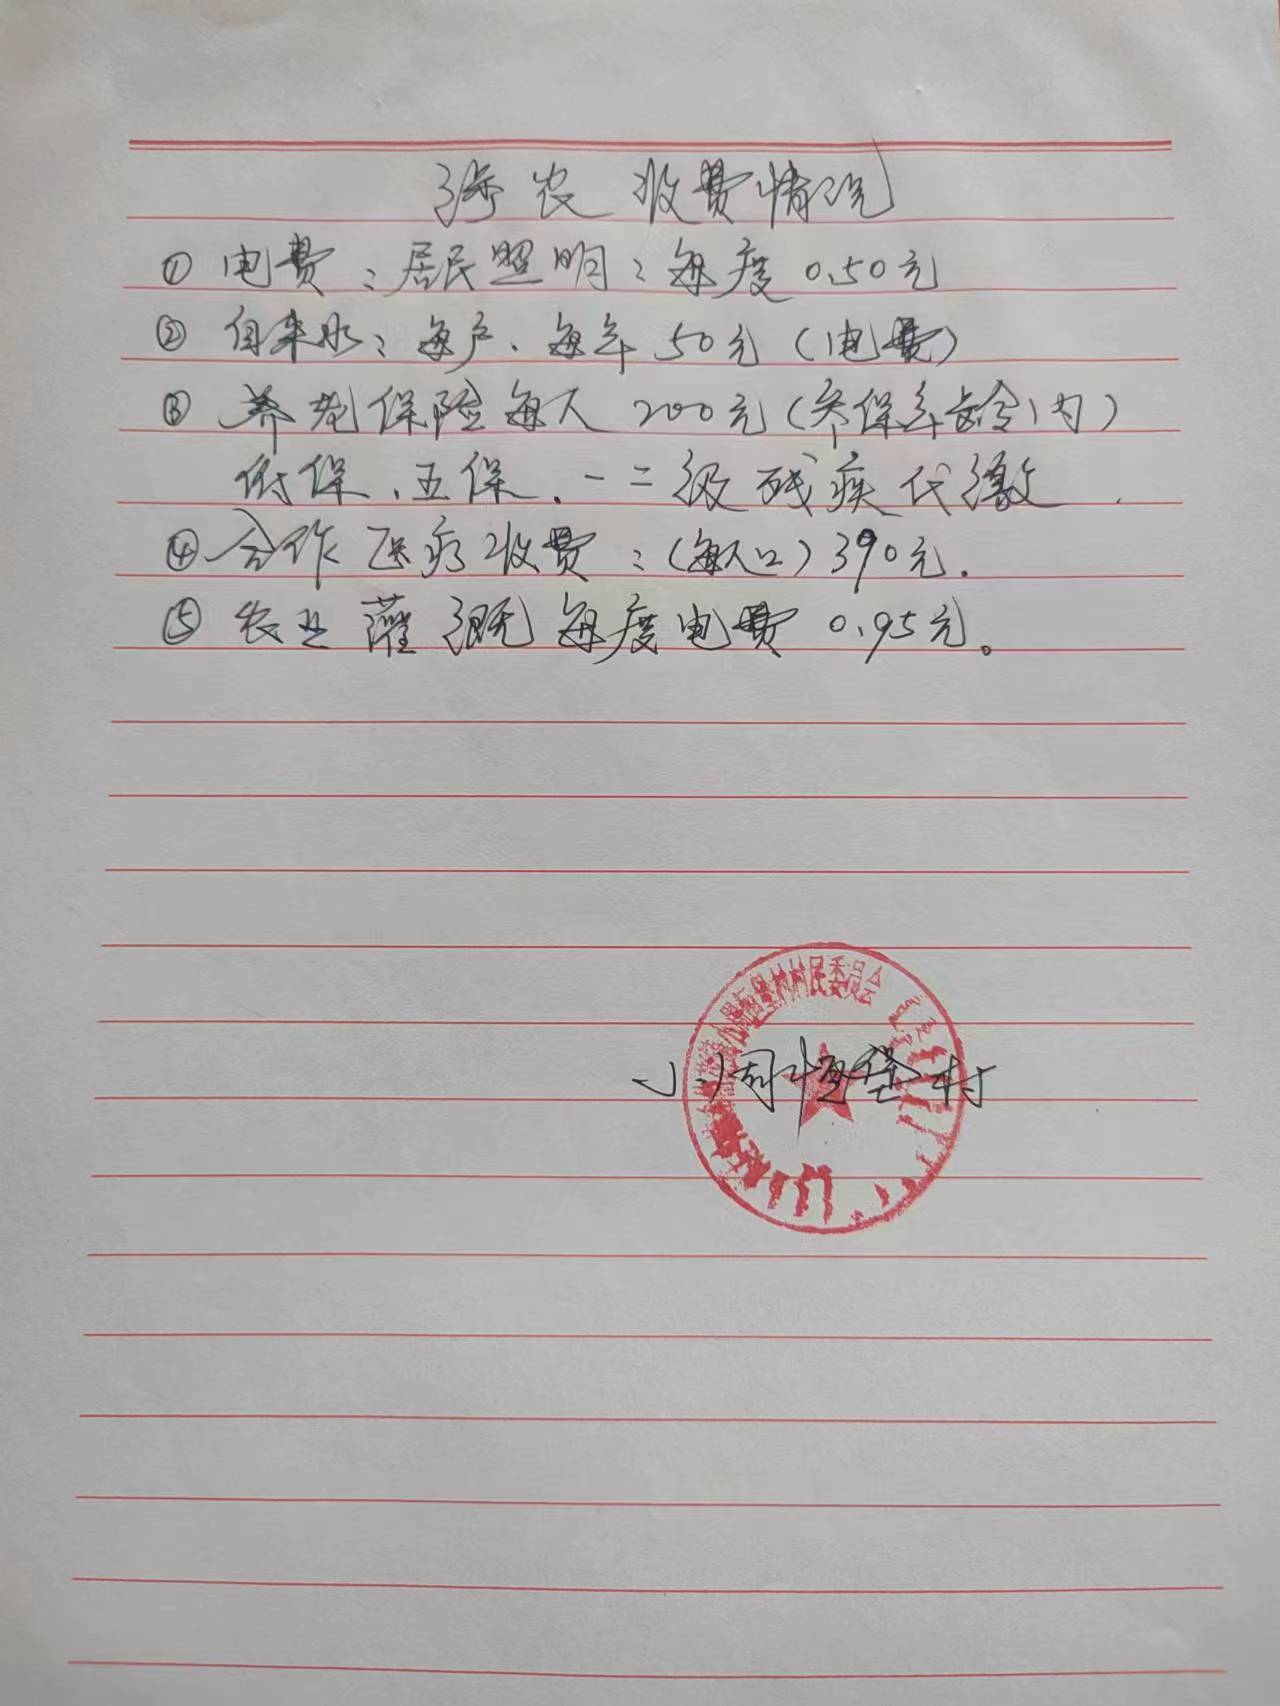 涉农收费情况
① 电费：居民照明：每度0.50元
② 自来水：每户、每年50元（电费）
③ 养老保险每人200元（参保年龄内）
低保、五保、一二级残疾代缴
④ 合作医疗收费：（每人口）390元.
⑤ 农业灌溉每度电费0.95元。
堡村村民委员会
小周恒堡村